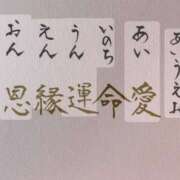 あいうえお
あい
愛
いのち
命
うん
運
えん
縁
おん
恩